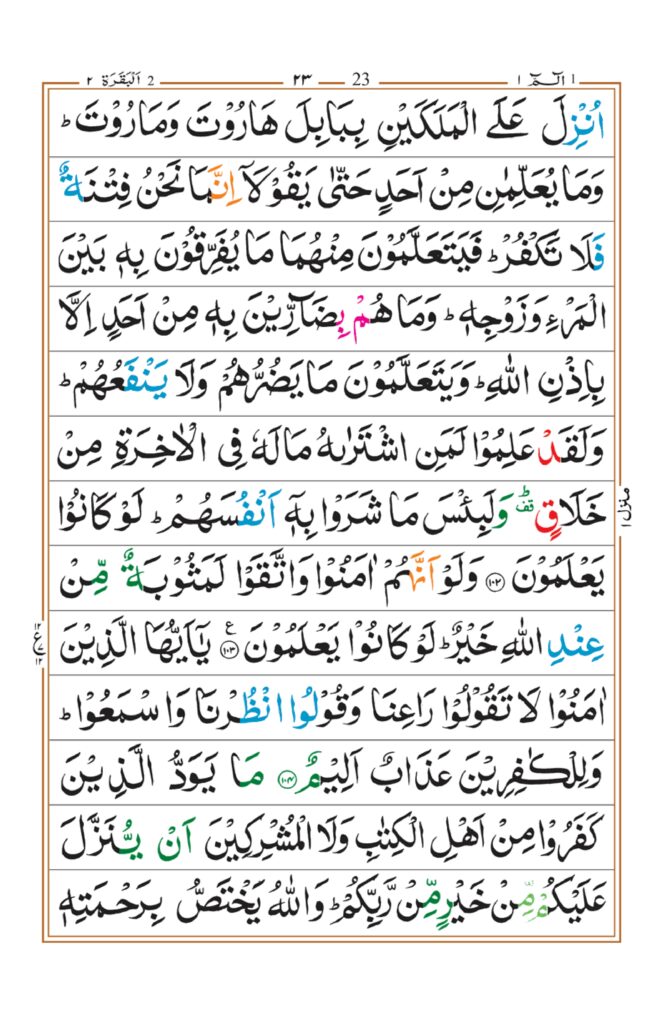 الٓمّٓ ١ 23 ٢٣ اَلْبَقَرَة ٢ 2
اُنْزِلَ عَلَى الْمَلَكَيْنِ بِبَابِلَ هَارُوْتَ وَمَارُوْتَ ؕ
وَمَا يُعَلِّمٰنِ مِنْ اَحَدٍ حَتّٰى يَقُوْلَاۤ اِنَّمَا نَحْنُ فِتْنَةٌ
فَلَا تَكْفُرْ ؕ فَيَتَعَلَّمُوْنَ مِنْهُمَا مَا يُفَرِّقُوْنَ بِهٖ بَيْنَ
الْمَرْءِ وَزَوْجِهٖ ؕ وَمَا هُمْ بِضَآرِّيْنَ بِهٖ مِنْ اَحَدٍ اِلَّا
بِاِذْنِ اللّٰهِ ؕ وَيَتَعَلَّمُوْنَ مَا يَضُرُّهُمْ وَلَا يَنْفَعُهُمْ ؕ
وَلَقَدْ عَلِمُوْا لَمَنِ اشْتَرٰىهُ مَا لَهٗ فِى الْاٰخِرَةِ مِنْ
خَلَاقٍ ؕ قف وَلَبِئْسَ مَا شَرَوْا بِهٖۤ اَنْفُسَهُمْ ؕ لَوْ كَانُوْا
يَعْلَمُوْنَ ﴿۱۰۲﴾ وَلَوْ اَنَّهُمْ اٰمَنُوْا وَاتَّقَوْا لَمَثُوْبَةٌ مِّنْ
عِنْدِ اللّٰهِ خَيْرٌ ؕ لَوْ كَانُوْا يَعْلَمُوْنَ ﴿۱۰۳﴾ ع يٰٓاَيُّهَا الَّذِيْنَ
اٰمَنُوْا لَا تَقُوْلُوْا رَاعِنَا وَقُوْلُوا انْظُرْنَا وَاسْمَعُوْا ؕ
وَلِلْكٰفِرِيْنَ عَذَابٌ اَلِيْمٌ ﴿۱۰۴﴾ مَا يَوَدُّ الَّذِيْنَ
كَفَرُوْا مِنْ اَهْلِ الْكِتٰبِ وَلَا الْمُشْرِكِيْنَ اَنْ يُّنَزَّلَ
عَلَيْكُمْ مِّنْ خَيْرٍ مِّنْ رَّبِّكُمْ ؕ وَاللّٰهُ يَخْتَصُّ بِرَحْمَتِهٖ
منزل ١